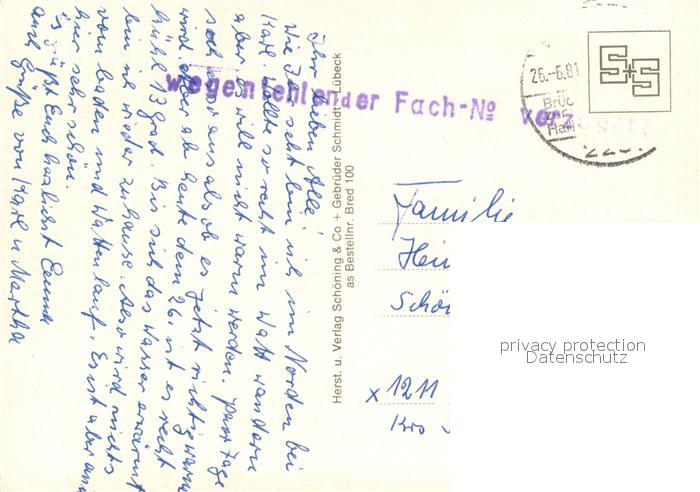 Ihr lieben Alle!
Wie Ihr seht bin ich im Norden bei
Karl. Wollte so recht im Watt wandern
aber es will nicht warm werden. Paar Tage
sah es so aus als ob es jetzt richtig warm
wird aber ab heute dem 26. ist es recht
kühl 13 grad. Bis sich das Wasser erwärmt
bin ich wieder zuhause. Also wird nichts
vom baden und Wattenlauf. Es ist aber
hier sehr schön.
Es grüßt Euch herzlichst
auch Grüße von Karl u Martha
Herst. u. Verlag Schöning & Co + Gebrüder Schmidt - Lübeck
as Bestellnr. Bred 100
wegen fehlender Fach-№ verzögert
26.-6.81
S+S
Familie
Hein
Schö
x 1211
Krs
privacy protection
Datenschutz